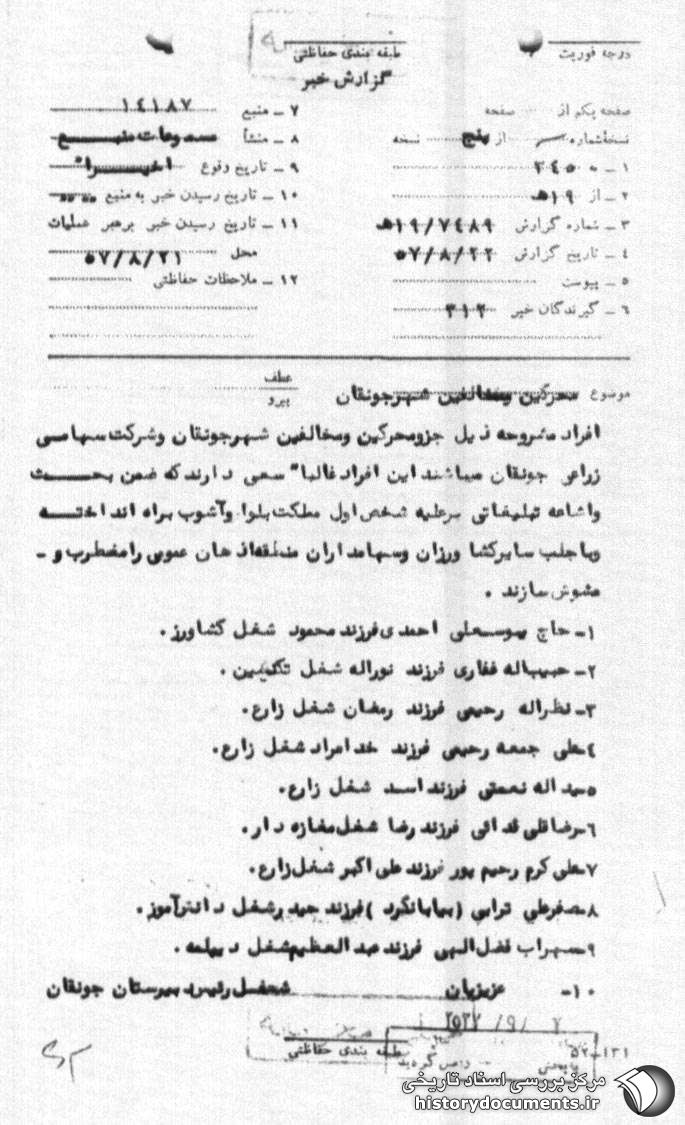 درجه فوریت
طبقه بندی حفاظتی
گزارش خبر
صفحه یکم از صفحه
نسخه شماره از پنج نسخه
۱ ـ به ۳٤۵۰
۲ ـ از ۱۹ هـ
۳ ـ شماره گزارش ۱۹/۷٤۸۹ هـ
٤ ـ تاریخ گزارش ۵۷/۸/۲۲
۵ ـ پیوست
٦ ـ گیرندگان خبر ۳۱۲
۷ ـ منبع ۱٤۱۸۷
۸ ـ منشأ مسموعات منبع
۹ ـ تاریخ وقوع اخیراً
۱۰ ـ تاریخ رسیدن خبر به منبع
۱۱ ـ تاریخ رسیدن خبر برهبر عملیات
محل ۵۷/۸/۲۱
۱۲ ـ ملاحظات حفاظتی
موضوع محرکین ومخالفین شهرجونقان
عطف
پیرو
افراد مشروحه ذیل جزومحرکین ومخالفین شهرجونقان وشرکت سهامی
زراعی جونقان میباشند این افراد غالباً سعی دارند که ضمن بحث
واشاعه تبلیغاتی برعلیه شخص اول مملکت بلوا وآشوب براه انداخته
وباجلب سایرکشاورزان وسهامداران منطقه اذهان عمومی رامضطرب و ـ
مشوش سازند .
۱ـ حاج یوسفعلی احمدی فرزند محمود شغل کشاورز .
۲ـ حبیب اله غفاری فرزند نوراله شغل
۳ـ نظراله رحیمی فرزند رمضان شغل زارع.
٤ـ علی جمعه رحیمی فرزند خدامراد شغل زارع.
۵ـ ید اله نعمتی فرزند اسد شغل زارع.
٦ـ رضاقلی فدائی فرزند رضا شغل مغازه دار.
۷ـ علی کرم رحیم پور فرزند علی اکبر شغل زارع.
۸ـ صفرعلی ترابی (بیابانگرد )فرزند حیدر شغل دانش آموز.
۹ـ سهراب فضل الهی فرزند عبدالعظیم شغل دیپلمه .
۱۰ـ عزیزیان شغل رئیس دبیرستان جونقان
طبقه بندی حفاظتی
۵۲ـ۱۳۱
مرکز بررسی اسناد تاریخی
historydocuments.ir